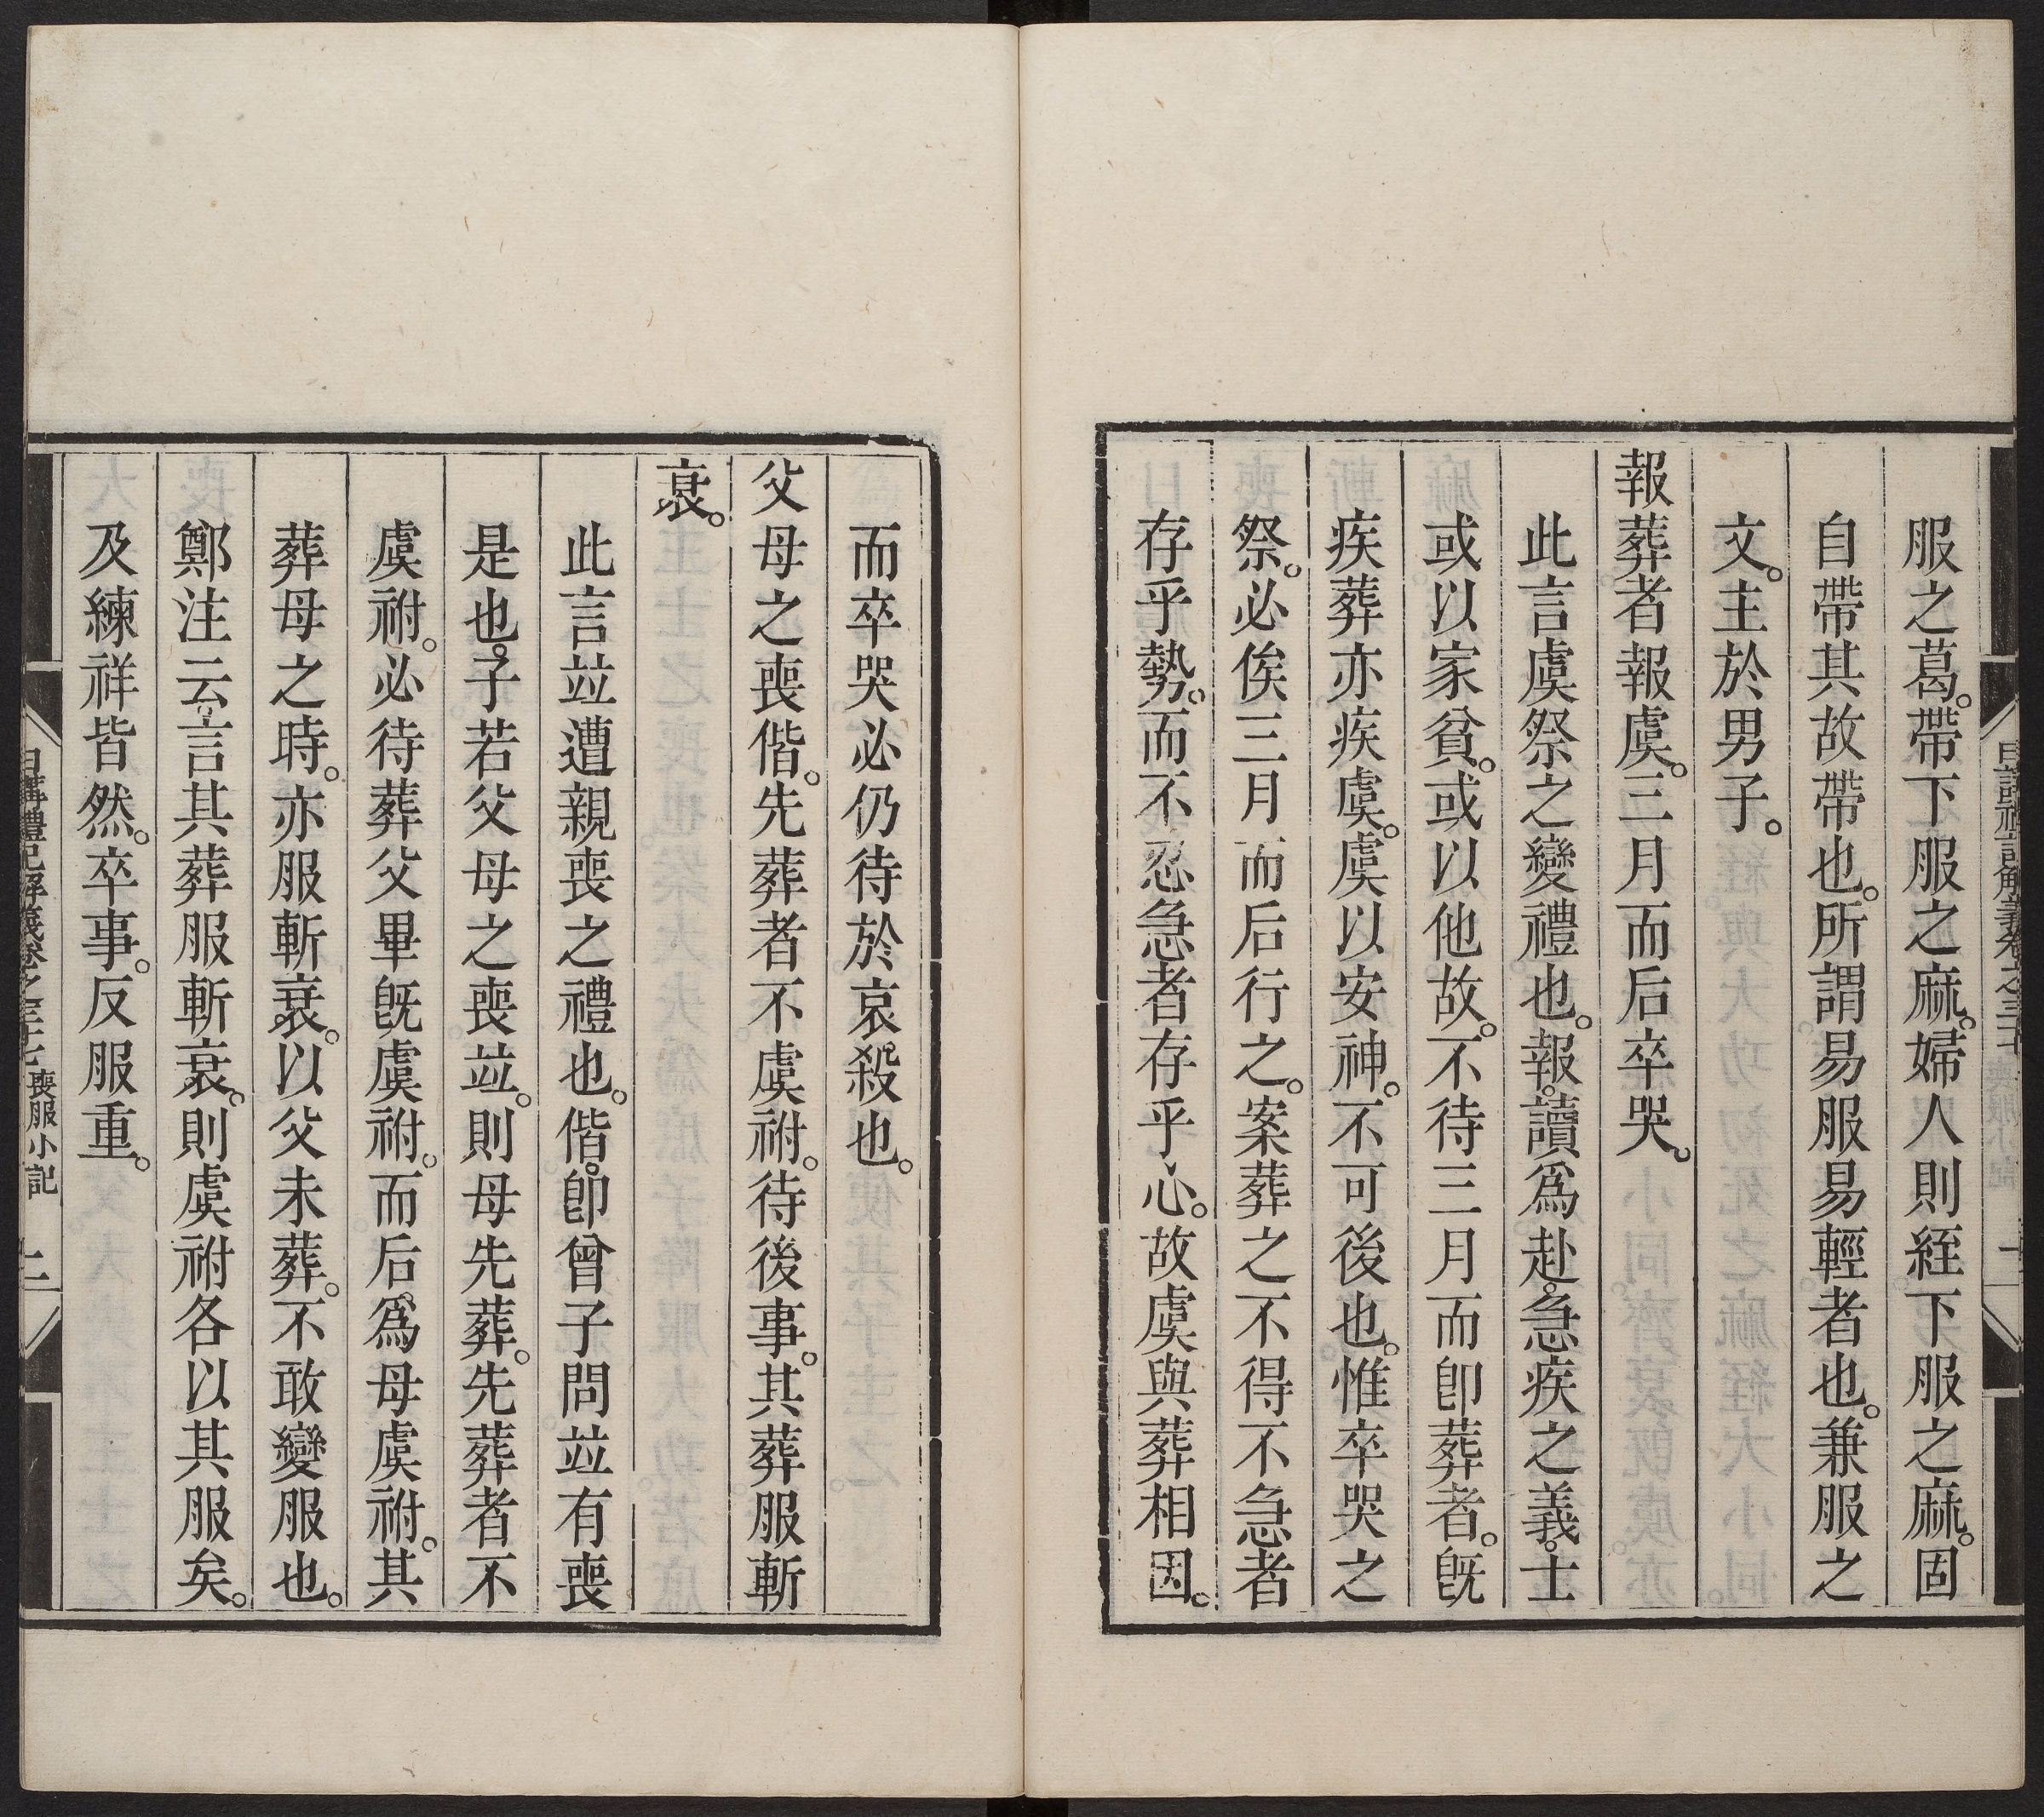 服之葛。帶下服之麻。婦人則絰下服之麻。固
自帶其故帶也。所謂易服易輕者也。兼服之
文。主於男子。
報葬者報虞。三月而后卒哭。
此言虞祭之變禮也。報。讀爲赴。急疾之義。士
或以家貧。或以他故。不待三月而卽葬者。旣
疾葬亦疾虞。虞以安神。不可後也。惟卒哭之
祭。必俟三月而后行之。案葬之不得不急者
存乎勢。而不忍急者存乎心。故虞與葬相因。
而卒哭必仍待於哀殺也。
父母之喪偕。先葬者不虞祔。待後事。其葬服斬
衰。
此言竝遭親喪之禮也。偕。卽曾子問竝有喪
是也。子若父母之喪竝。則母先葬。先葬者不
虞祔。必待葬父畢旣虞祔。而后爲母虞祔。其
葬母之時。亦服斬衰。以父未葬。不敢變服也。
鄭注云。言其葬服斬衰。則虞祔各以其服矣。
及練祥皆然。卒事。反服重。
日講禮記解義卷之三十七 喪服小記